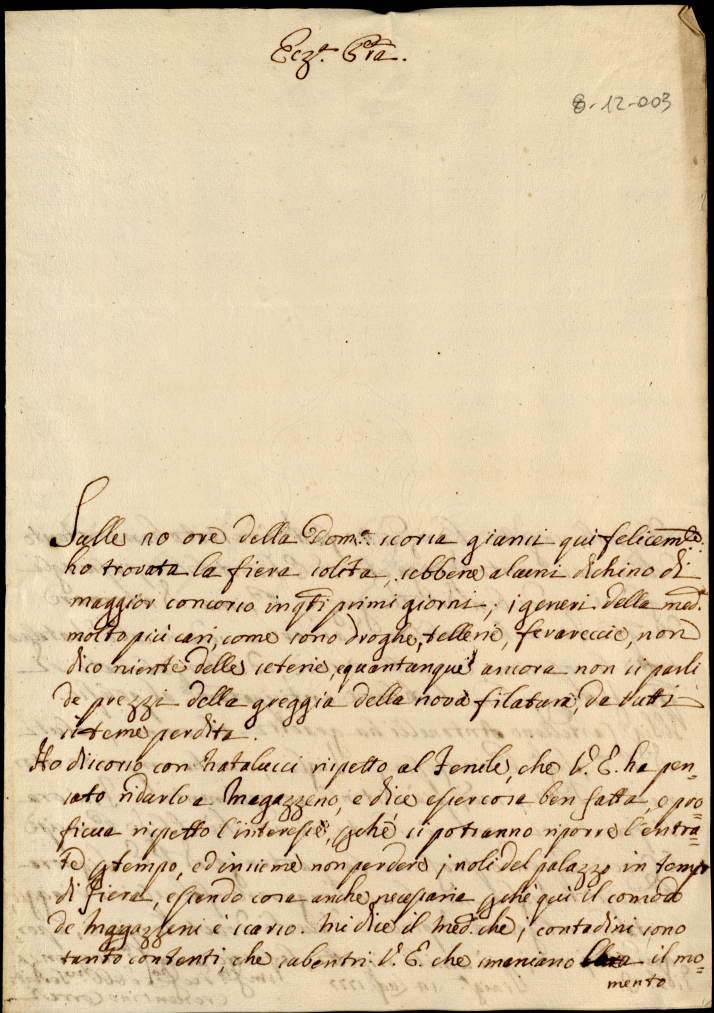 Ecz.ª Pr̃a.
8-12-003
Sulle 20 ore della Dom.ca scorsa giunsi qui felicem.te
ho trovata la fiera solita, sebbene alcuni dichino di
maggior concorso in q̃ti primi giorni; i generi della med.ª
molto più cari, come sono droghe, tellerie, feraveccie, non
dico niente delle seterie, quantunque ancora non si parli
de prezzi della greggia della nova filatura, da tutti
si teme perdita.
Ho discorso con Natalucci rispetto al Fenile, che V. E. ha pen=
sato ridarlo a Magazzeno, e dice esser cosa ben fatta, e pro=
ficua rispetto l'interesse, p̱ché si potranno riporre l'entra=
te p̱ tempo, ed insieme non perdere i noli del palazzo in temp̱o
di fiera, essendo cosa anche necessaria p̱ché qui il comodo
de Magazzeni è scarso. Mi dice il med. che i contadini sono
tanto contenti, che subentri V. E. che smaniano il mo=
mento